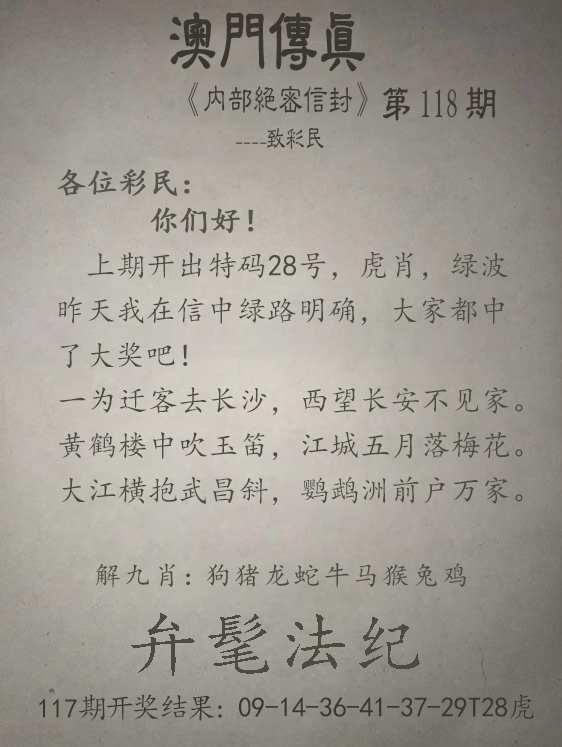 澳門傳眞
《内部絕密信封》第118期
----致彩民
各位彩民：
你们好！
上期开出特码28号，虎肖，绿波
昨天我在信中绿路明确，大家都中
了大奖吧！
一为迁客去长沙，西望长安不见家。
黄鹤楼中吹玉笛，江城五月落梅花。
大江横抱武昌斜，鹦鹉洲前户万家。
解九肖：狗猪龙蛇牛马猴兔鸡
弁髦法纪
117期开奖结果：09-14-36-41-37-29T28虎